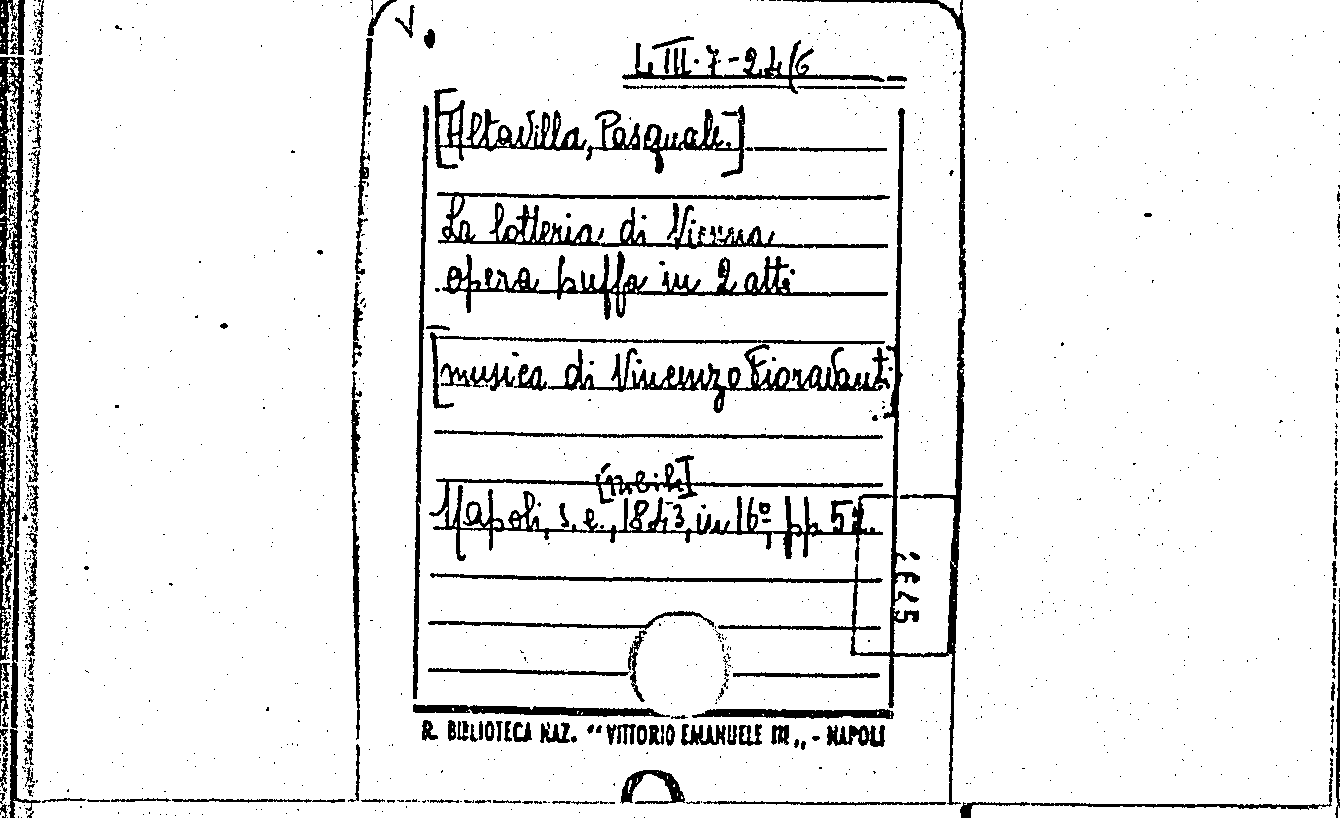 L. III. 7-24/6
[Altavilla, Pasquale.]
La lotteria di Vienna
opera buffa in 2 atti
[musica di Vincenzo Fioravanti.]
Napoli, s. e., 1843, in 16º, pp.
R. BIBLIOTECA NAZ. "VITTORIO EMANUELE III„ - NAPOLI